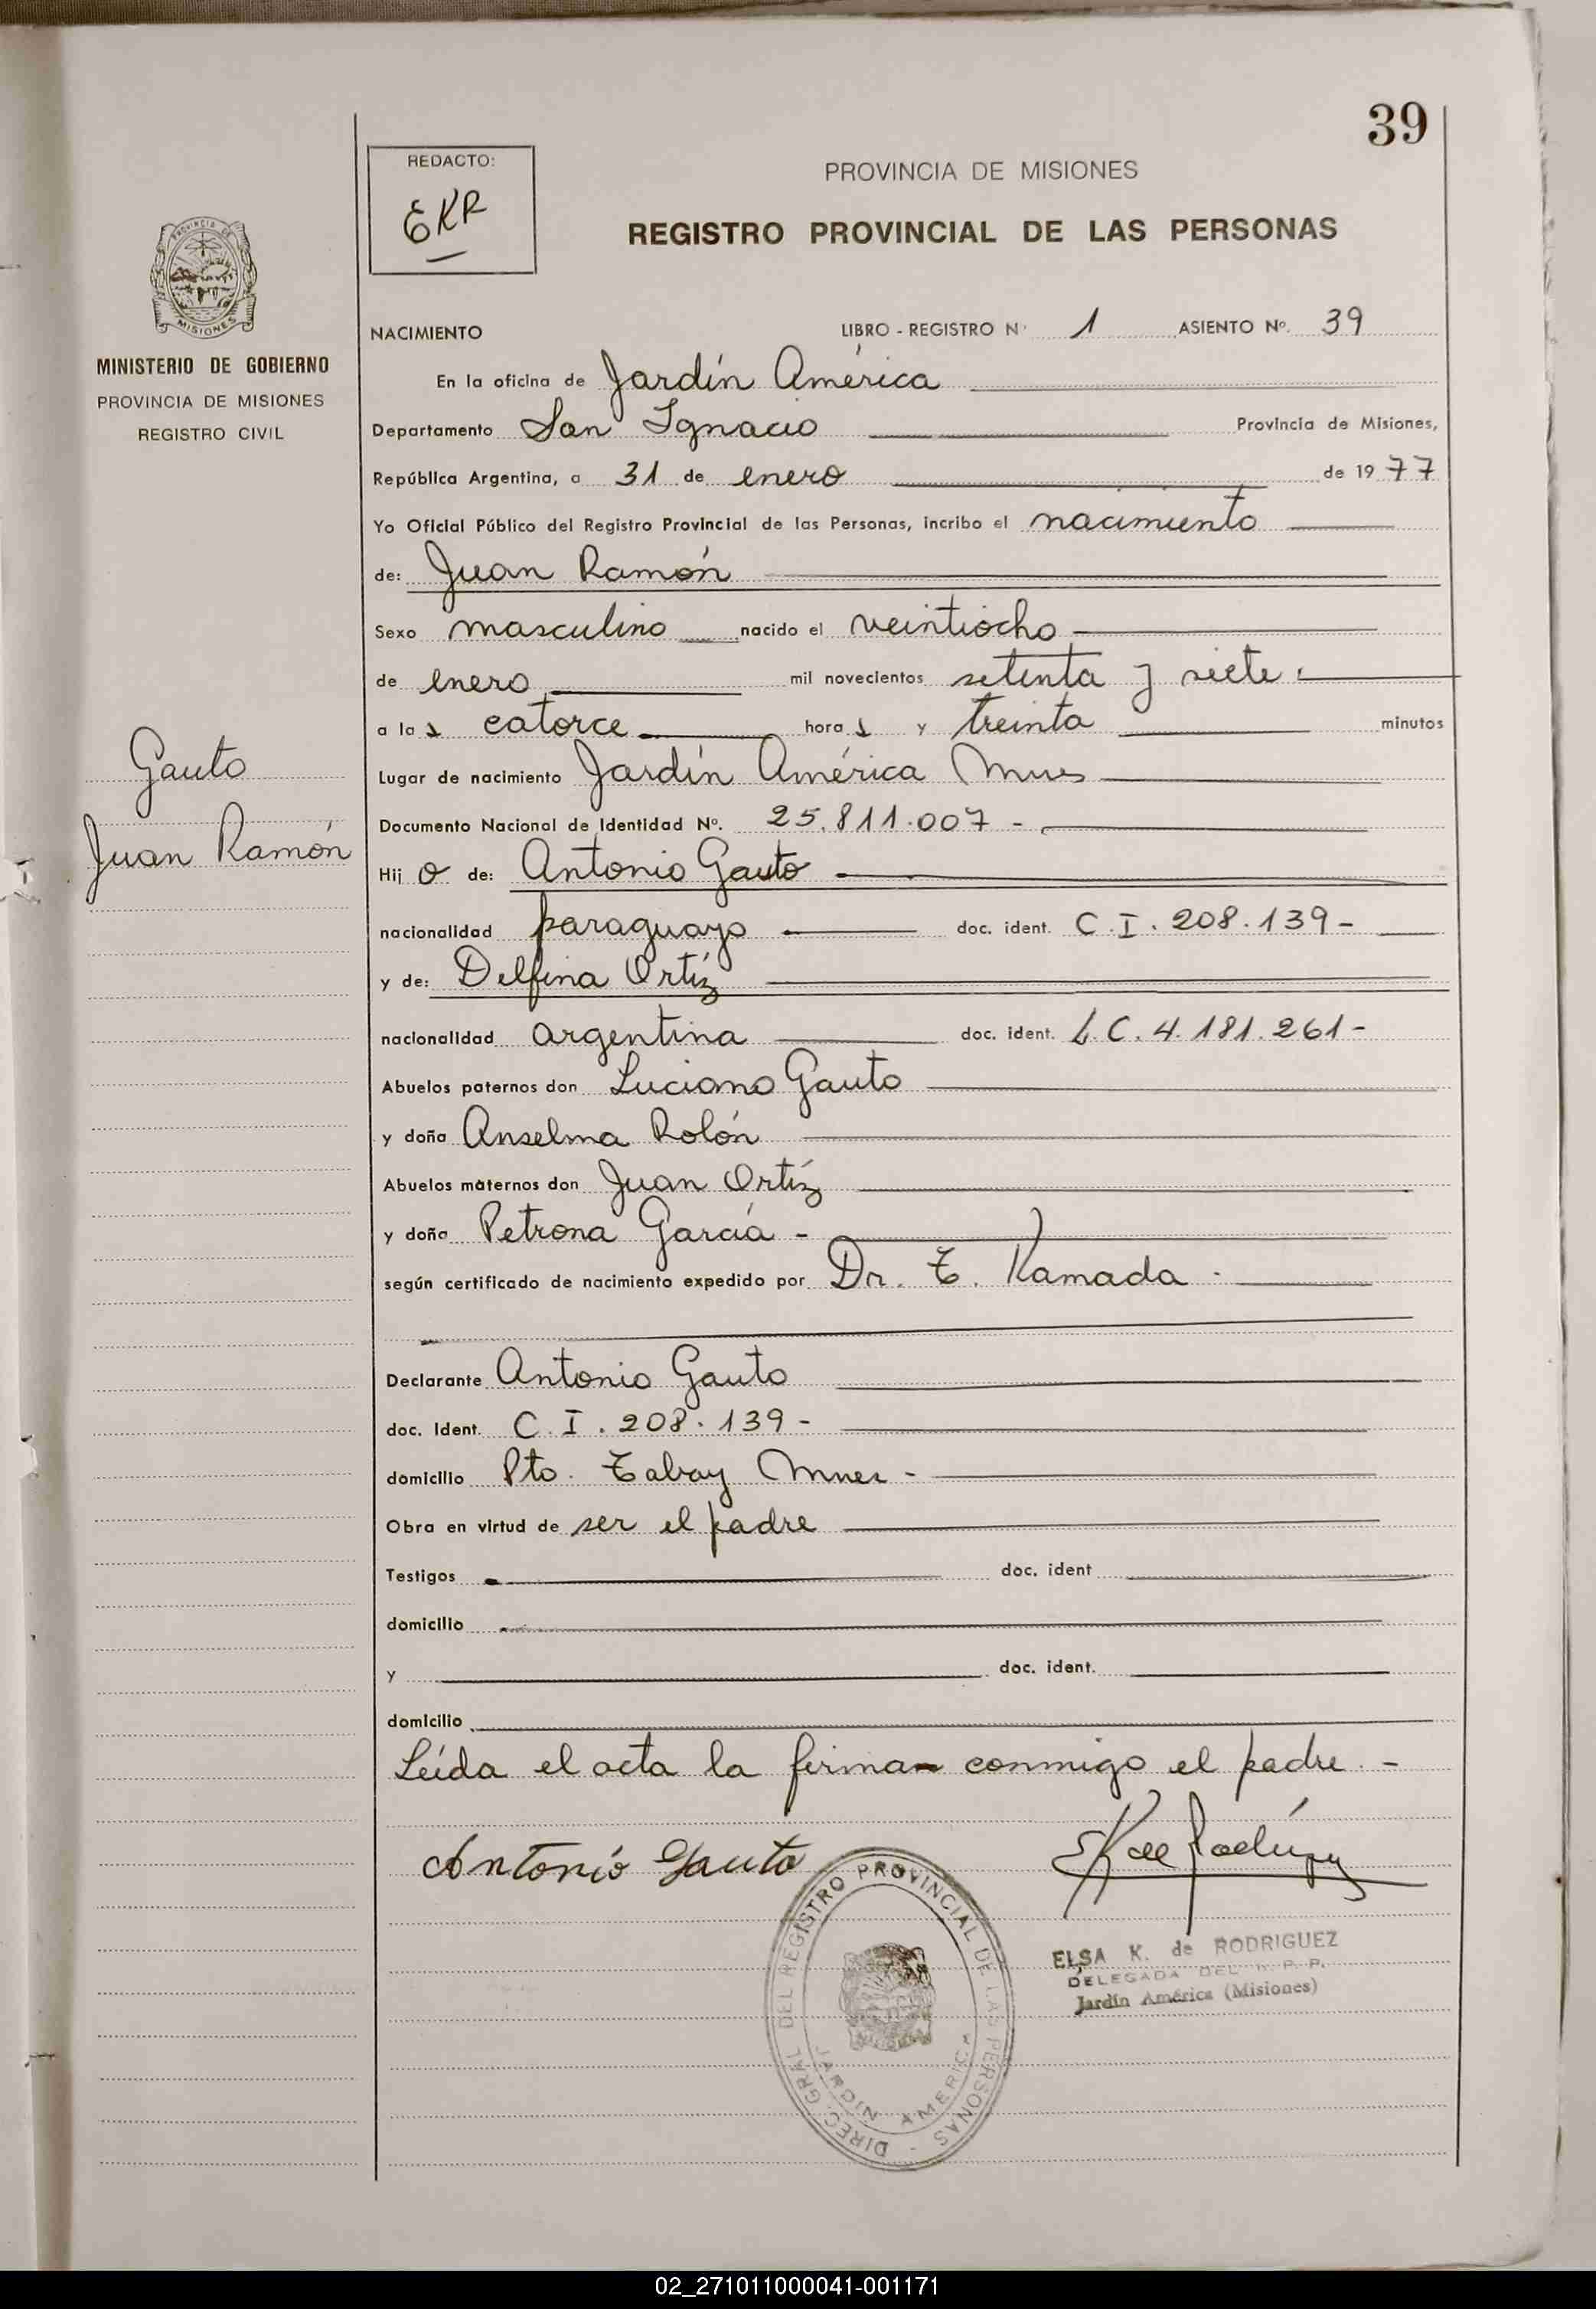 39
REDACTO:
EKR
PROVINCIA DE MISIONES
REGISTRO PROVINCIAL DE LAS PERSONAS
PROVINCIA DE
MISIONES
MINISTERIO DE GOBIERNO
PROVINCIA DE MISIONES
REGISTRO CIVIL
NACIMIENTO LIBRO - REGISTRO Nº 1 ASIENTO Nº. 39
En la oficina de Jardín América
Departamento San Ignacio Provincia de Misiones,
República Argentina, a 31 de enero de 1977
Yo Oficial Público del Registro Provincial de las Personas, incribo el nacimiento
de: Juan Ramón
Sexo masculino nacido el veintiocho
de enero mil novecientos setenta y siete
a las catorce horas y treinta minutos
Gauto
Juan Ramón
Lugar de nacimiento Jardín América Mnes
Documento Nacional de Identidad Nº. 25.811.007 -
Hijo de: Antonio Gauto
nacionalidad paraguayo doc. ident. C.I. 208.139-
y de: Delfina Ortíz
nacionalidad argentina doc. ident. L.C. 4.181.261-
Abuelos paternos don Luciano Gauto
y doña Anselma Rolón
Abuelos maternos don Juan Ortíz
y doña Petrona García -
según certificado de nacimiento expedido por Dr. T. Kamada.
Declarante Antonio Gauto
doc. Ident. C.I. 208.139-
domicilio Pto. Tabay Mnes -
Obra en virtud de ser el padre
Testigos doc. ident
domicilio
y doc. ident.
domicilio
Leída el acta la firman conmigo el padre. -
Antonio Gauto EK de Rodríguez
DIREC. GRAL. DEL REGISTRO PROVINCIAL DE LAS PERSONAS
JARDIN AMERICA
ELSA K. de RODRIGUEZ
DELEGADA DEL R. P. P.
Jardín América (Misiones)
02_271011000041-001171